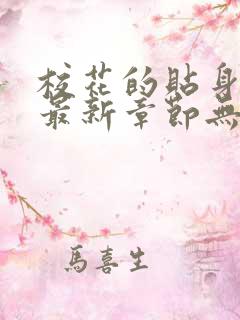 校花的貼身
最新章節無
馬喜生